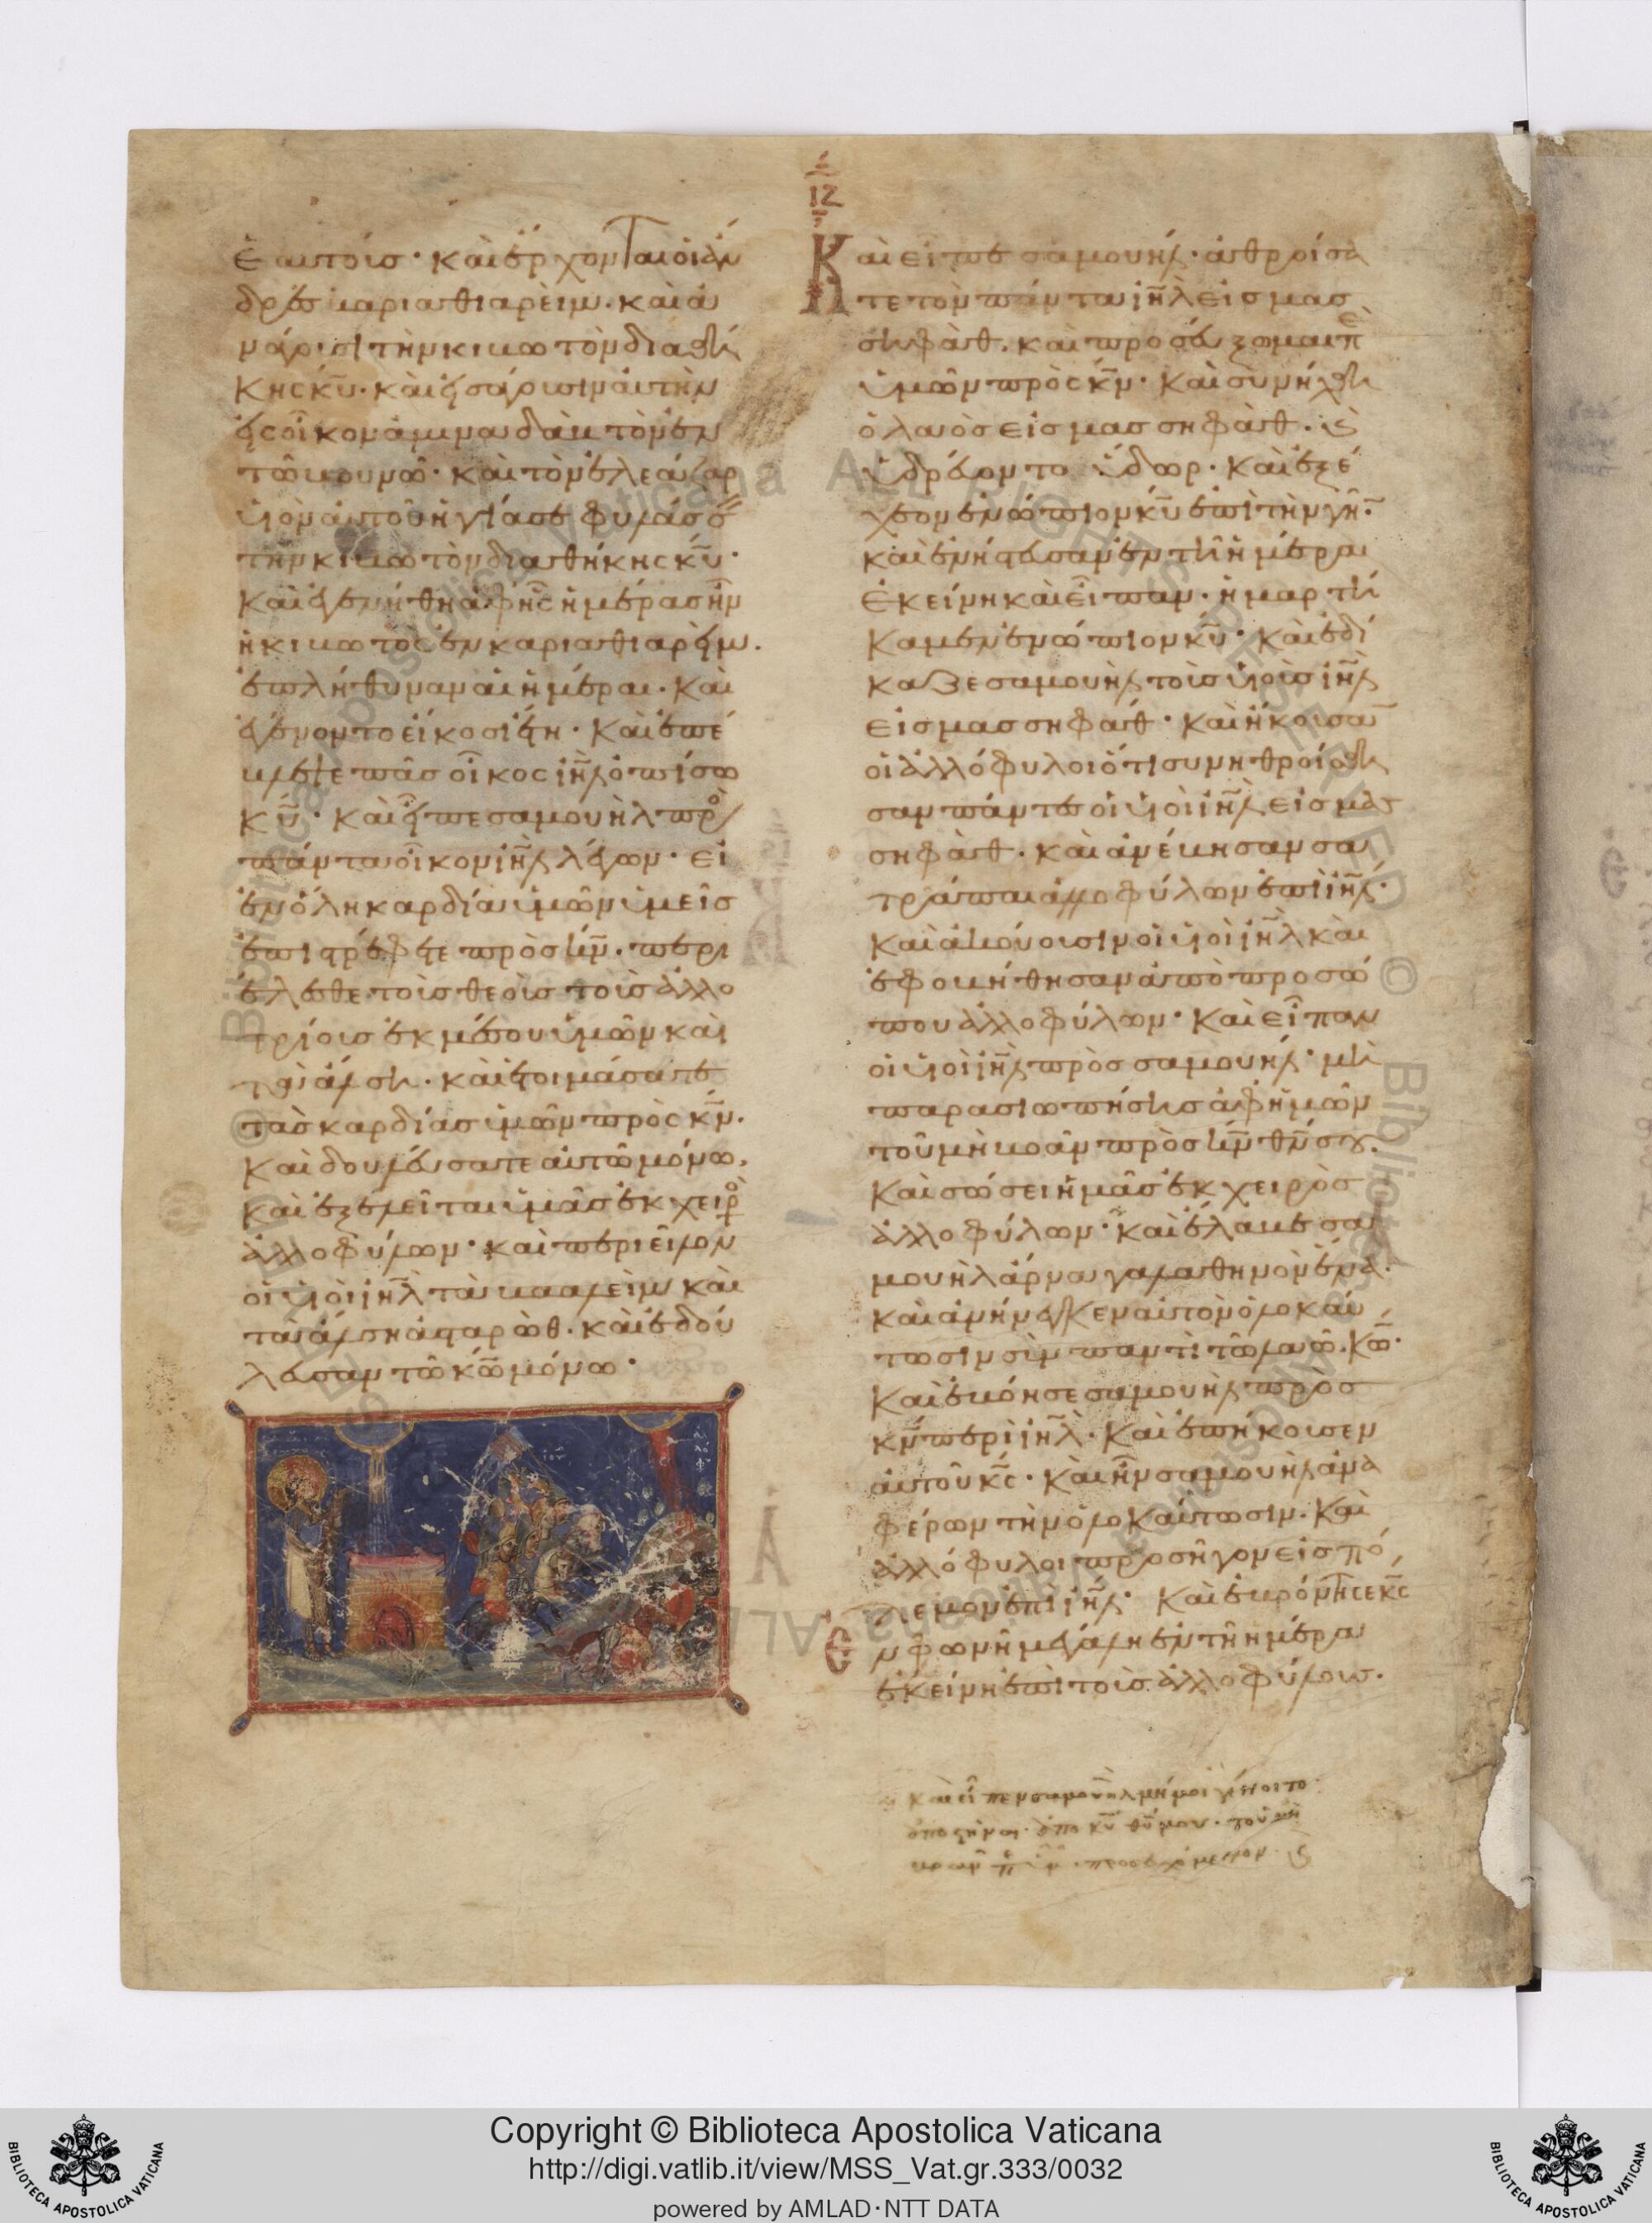 ἑαυτούς· καὶ ἔρχονται οἱ ἄν
δρες καριαθιαρείμ· καὶ ἀ
νάγουσι τὴν κιβωτὸν διαθή
κης κ̅υ̅· καὶ εἰσάγουσιν αὐτὴν
εἰς οἶκον ἀμιναδὰβ τὸν ἐν
τῶ βουνῶ· καὶ τὸν ἐλεάζαρ
υἱὸν αὐτοῦ ἡγίασε φυλάσσειν
τὴν κιβωτὸν διαθήκης κ̅υ̅·
καὶ ἐγενήθη ἀφ' ἧς ἡμέρας ἦν
ἡ κιβωτὸς ἐν καριαθιαρείμ·
ἐπλήθυναν αἱ ἡμέραι· καὶ
ἐγένοντο εἴκοσι ἔτη· καὶ ἐπέ
βλεψε πᾶς οἶκος ι̅η̅λ̅ ὀπίσω
κ̅υ̅· καὶ εἶπε σαμουὴλ πρὸς
πάντα οἶκον ι̅η̅λ̅ λέγων· εἰ
ἐν ὅλη καρδία ὑμῶν ὑμεῖς
ἐπιστρέφετε πρὸς κ̅ν̅· περι
έλεσθε τοὺς θεοὺς τοὺς ἀλλο
τρίους ἐκ μέσου ὑμῶν καὶ
τὰ ἄλση· καὶ ἑτοιμάσατε
τὰς καρδίας ὑμῶν πρὸς κ̅ν̅·
καὶ δουλεύσατε αὐτῶ μόνω·
καὶ ἐξελεῖται ὑμᾶς ἐκ χειρὸς
ἀλλοφύλων· καὶ περιεῖλον
οἱ υἱοὶ ι̅η̅λ̅ τὰ βααλεὶμ καὶ
τὰ ἄλση ἀσταρώθ· καὶ ἐδού
λευσαν τῶ κ̅ω̅ μόνω·
12
Καὶ εἶπε σαμουήλ· ἀθροίσα
τε τὸν πάντα ι̅η̅λ̅ εἰς μασ
σηφάθ· καὶ προσεύξομαι πε
ὑμῶν πρὸς κ̅ν̅· καὶ συνήχθη
ὁ λαὸς εἰς μασσηφάθ· καὶ
ὑδρεύοντο ὕδωρ· καὶ ἐξέ
χεον ἐνώπιον κ̅υ̅ ἐπὶ τὴν γῆν·
καὶ ἐνήστευσαν ἐν τῆ ἡμέρα
ἐκείνη καὶ εἶπαν· ἡμαρτή
καμεν ἐνώπιον κ̅υ̅· καὶ ἐδί
καζε σαμουὴλ τοὺς υἱοὺς ι̅η̅λ̅
εἰς μασσηφάθ· καὶ ἤκουσαν
οἱ ἀλλόφυλοι ὅτι συνηθροίσθη
σαν πάντες οἱ υἱοὶ ι̅η̅λ̅ εἰς μασ
σηφάθ· καὶ ἀνέβησαν σα
τράπαι ἀλλοφύλων ἐπὶ ι̅η̅λ̅·
καὶ ἀκούουσιν οἱ υἱοὶ ι̅η̅λ̅ καὶ
ἐφοβήθησαν ἀπὸ προσώ
που ἀλλοφύλων· καὶ εἶπαν
οἱ υἱοὶ ι̅η̅λ̅ πρὸς σαμουήλ· μὴ
παρασιωπήσης ἀφ' ἡμῶν
τοῦ μὴ βοᾶν πρὸς κ̅ν̅ θ̅ν̅ σου·
καὶ σώσει ἡμᾶς ἐκ χειρὸς
ἀλλοφύλων· καὶ ἔλαβε σα
μουὴλ ἄρνα γαλαθηνὸν ἕνα·
καὶ ἀνήνεγκεν αὐτὸν ὁλοκαύ
τωσιν σὺν παντὶ τῶ λαῶ κ̅ω̅·
καὶ ἐβόησε σαμουὴλ πρὸς
κ̅ν̅ περὶ ι̅η̅λ̅· καὶ ἐπήκουσεν
αὐτοῦ κ̅ς̅· καὶ ἦν σαμουὴλ ἀνα
φέρων τὴν ὁλοκαύτωσιν· καὶ
ἀλλόφυλοι προσῆγον εἰς πό
λεμον ἐπὶ ι̅η̅λ̅· καὶ ἐβρόντησε κ̅ς̅
ἐν φωνῆ μεγάλη ἐν τῆ ἡμέρα
ἐκείνη ἐπὶ τοὺς ἀλλοφύλους·
καὶ εἶπεν σαμουὴλ μή μοι γένοιτο·
ἀποστῆναι ἀπὸ κ̅υ̅ θ̅υ̅ μου· τοῦ μὴ
βοᾶν προσευχόμενον
Copyright © Biblioteca Apostolica Vaticana
http://digi.vatlib.it/view/MSS_Vat.gr.333/0032
powered by AMLAD·NTT DATA
BIBLIOTECA APOSTOLICA VATICANA
BIBLIOTECA APOSTOLICA VATICANA